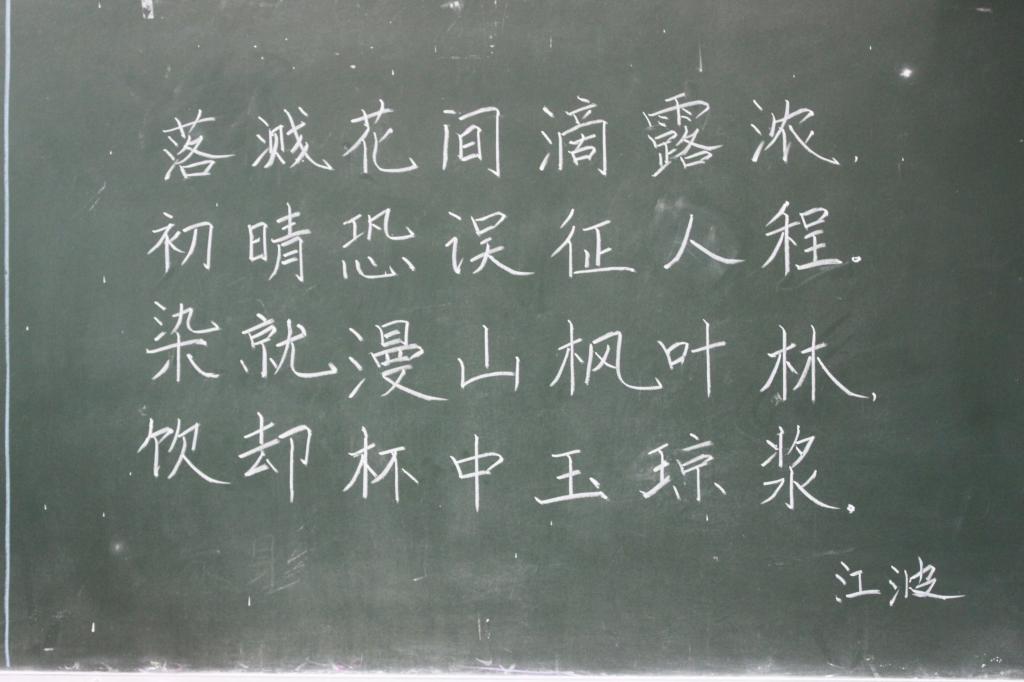 落溅花间滴露浓,
初晴恐误征人程。
染就漫山枫叶林,
饮却杯中玉琼浆。
江波